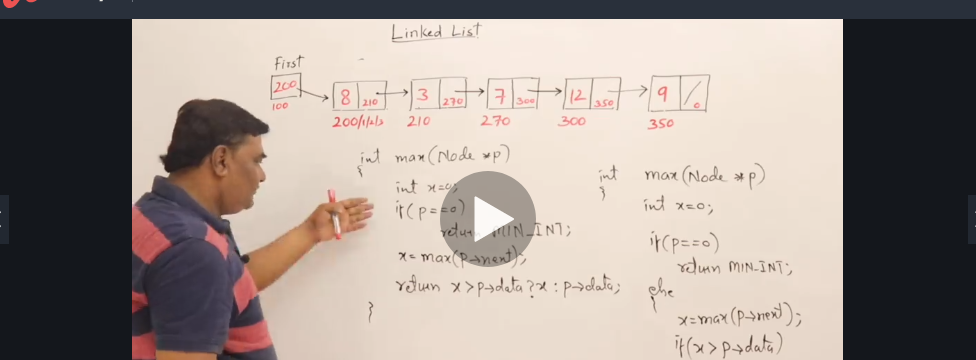 Linked List
First
200
100
8 210
3 270
7 300
12 350
9 0
200/1/2/3
210
270
300
350
int max(Node *p)
{
int x=0;
if(p==0)
return MIN_INT;
x=max(p→next);
return x>p→data?x:p→data;
}
int max(Node *p)
{
int x=0;
if(p==0)
return MIN_INT;
else
{
x=max(p→next);
if(x>p→data)